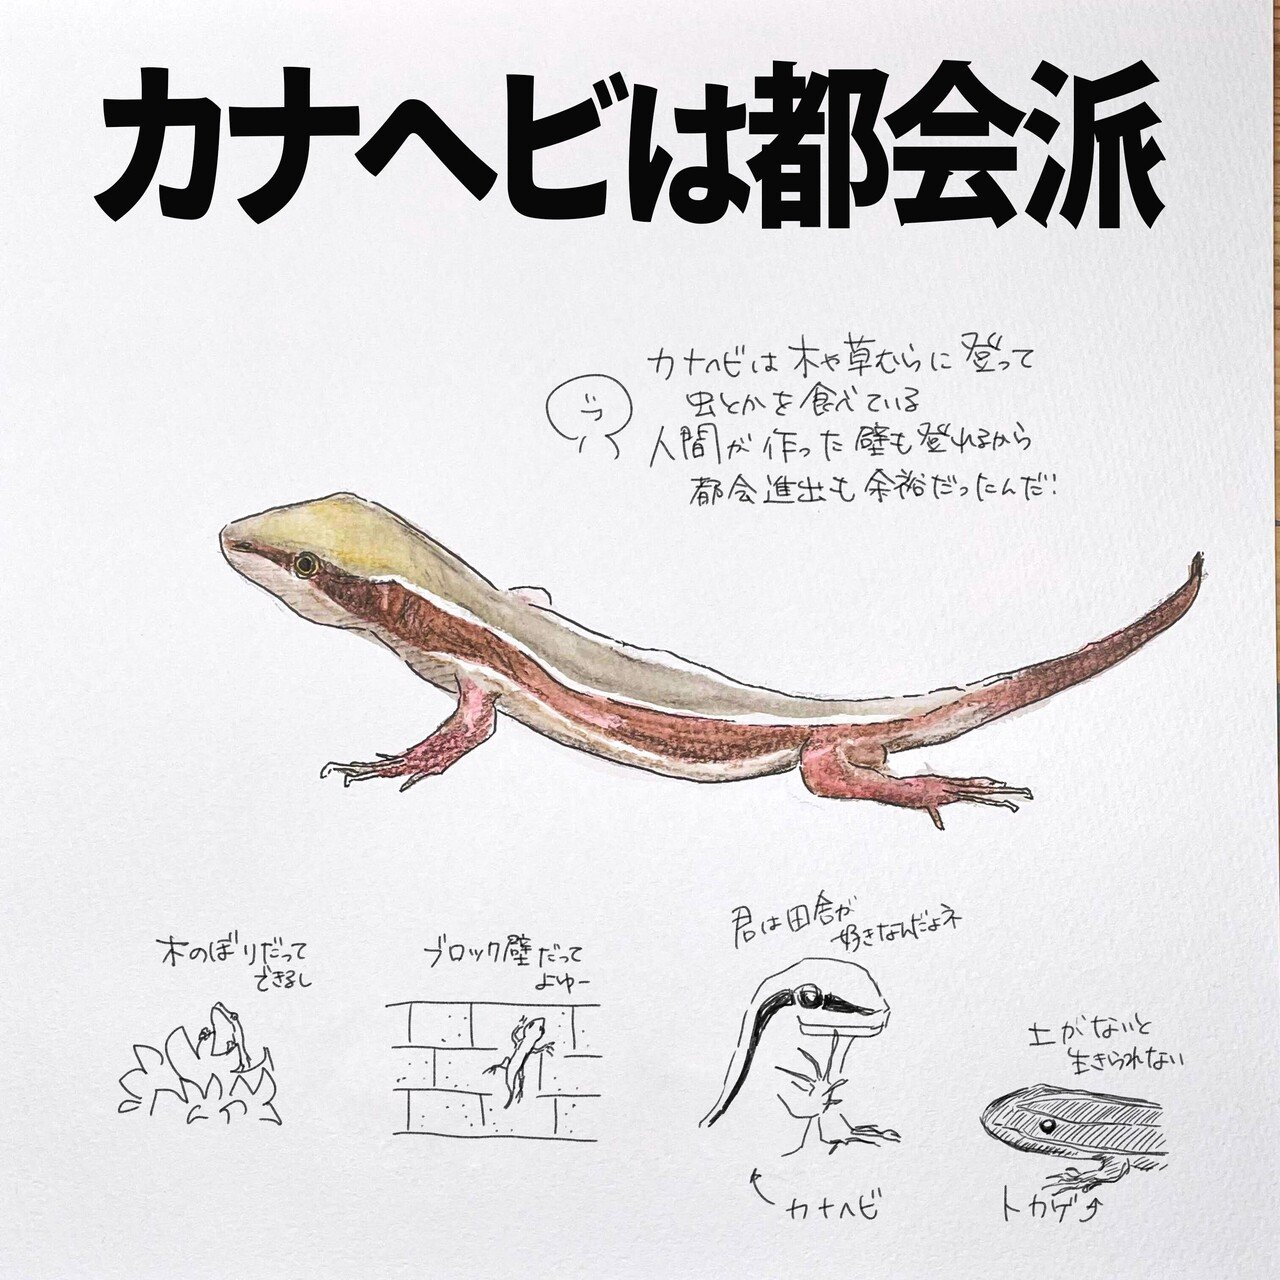 カナヘビは都会派
カナヘビは木や草むらに登って
虫とかを食べている
人間が作った壁も登れるから
都会進出も余裕だったんだ！
木のぼりだって
できるし
ブロック壁だって
よゆー
君は田舎が
好きなんだよネ
土がないと
生きられない
カナヘビ
トカゲ